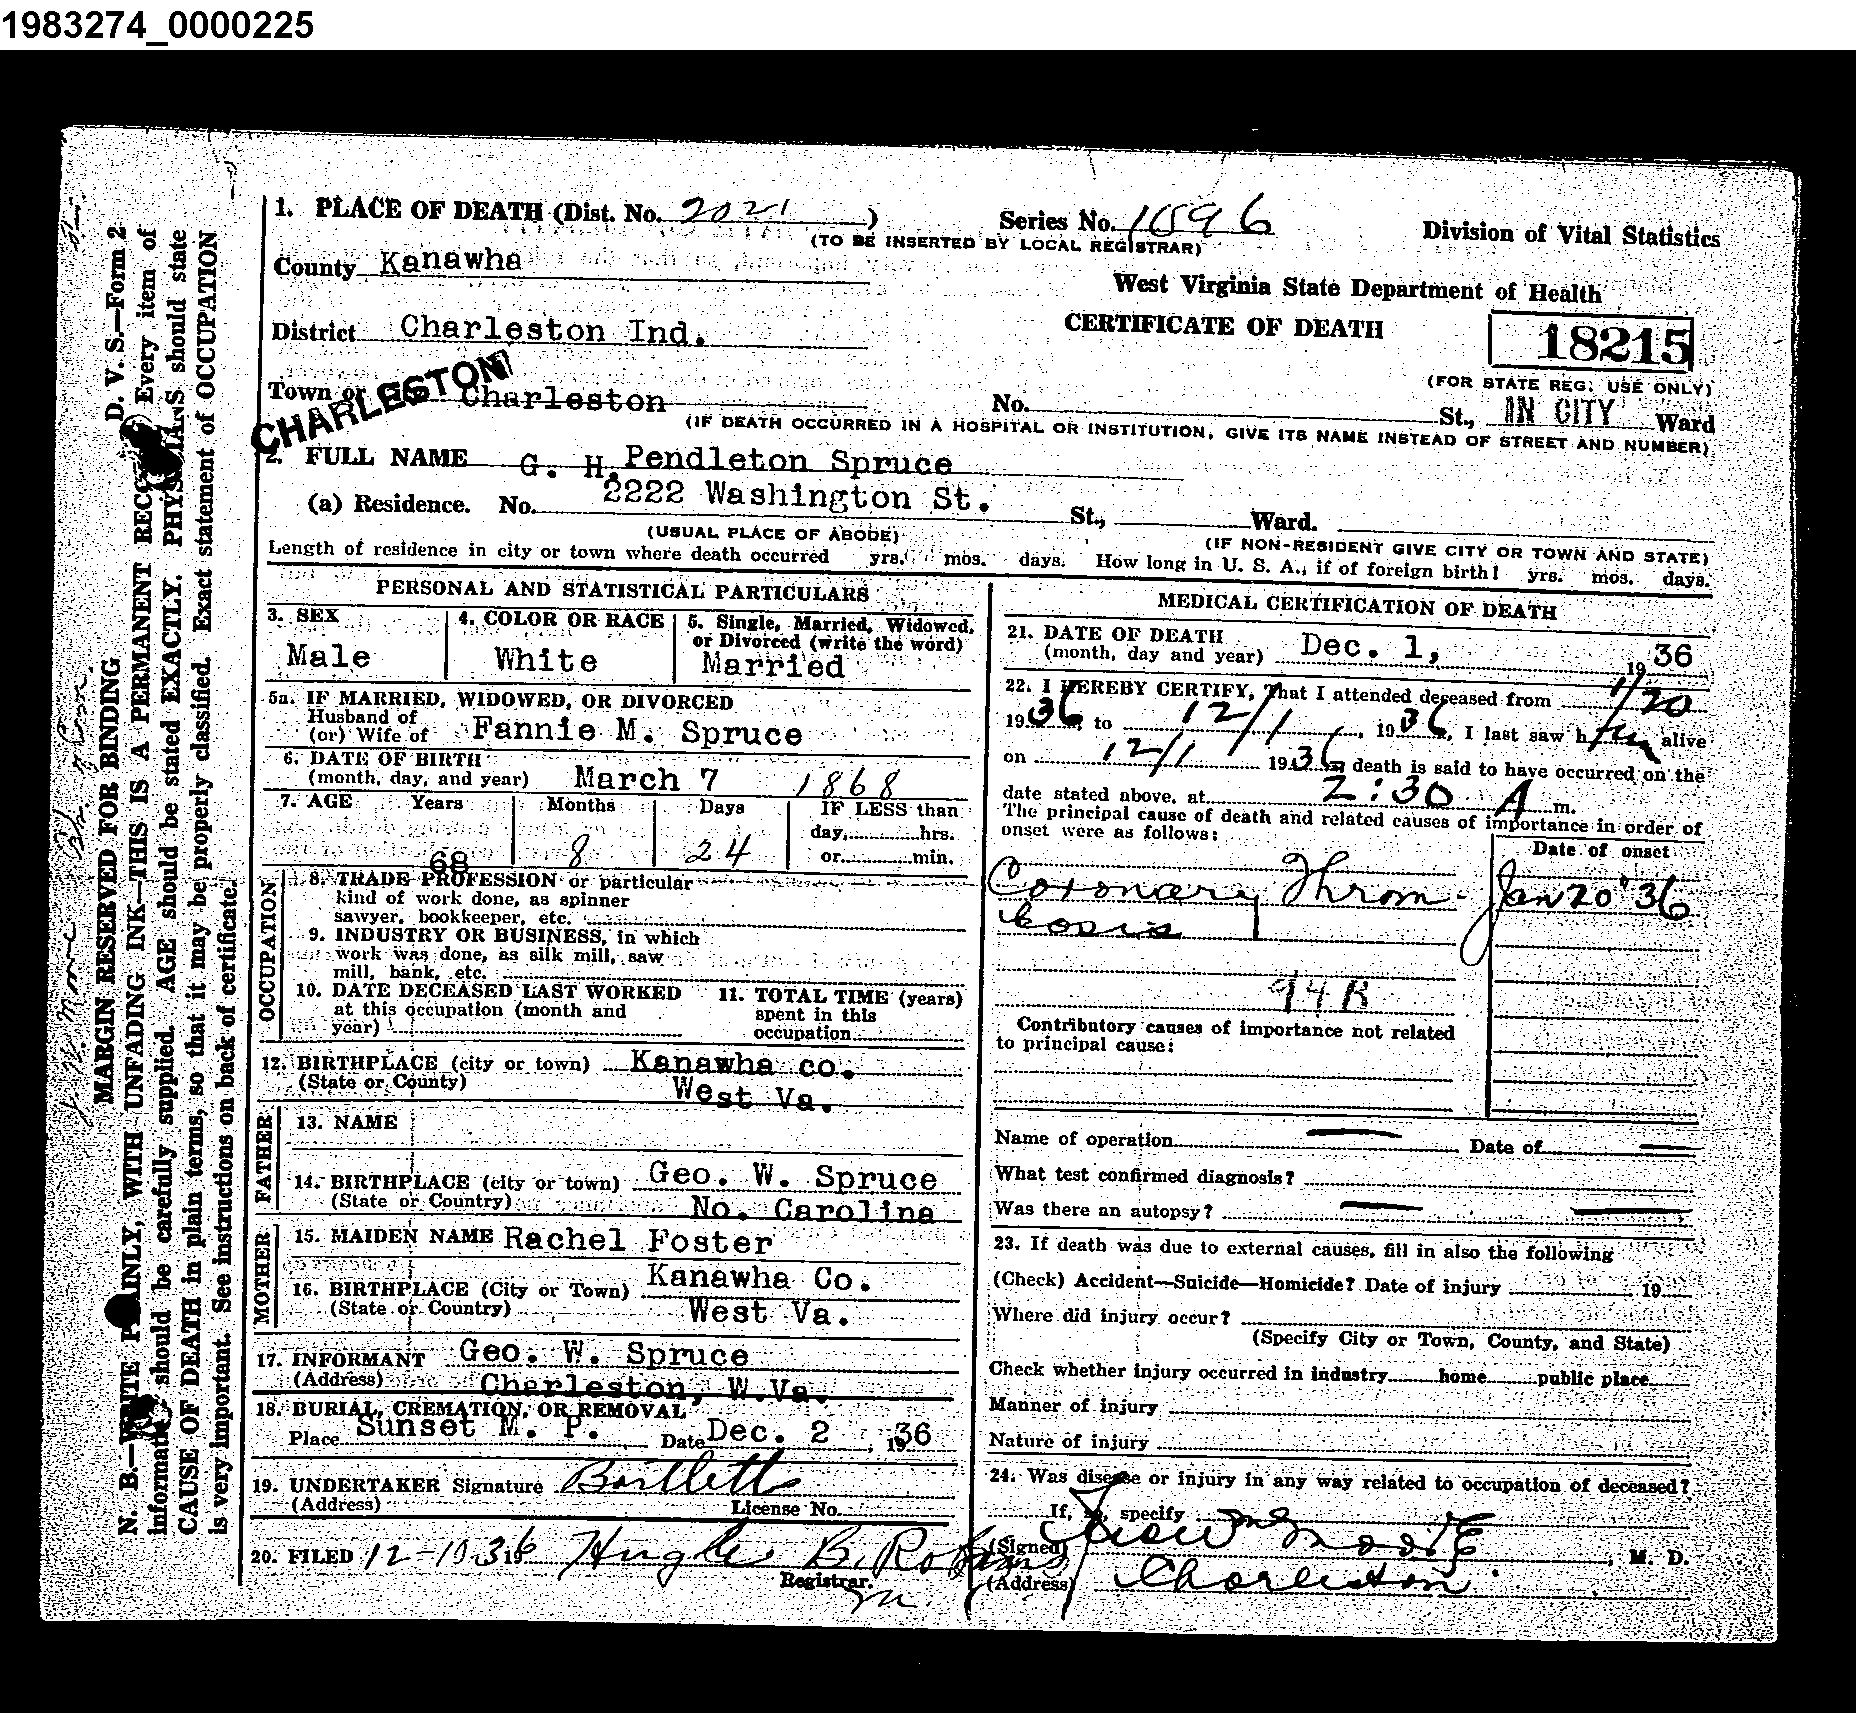 1983274_0000225
1. PLACE OF DEATH (Dist. No. 2021 )
Series No. 1696
(TO BE INSERTED BY LOCAL REGISTRAR)
Division of Vital Statistics
County Kanawha
West Virginia State Department of Health
District Charleston Ind.
CERTIFICATE OF DEATH
18215
(FOR STATE REG. USE ONLY)
Town or Charleston
CHARLESTON
No. St., IN CITY Ward
(IF DEATH OCCURRED IN A HOSPITAL OR INSTITUTION, GIVE ITS NAME INSTEAD OF STREET AND NUMBER)
2. FULL NAME G. H. Pendleton Spruce
(a) Residence. No. 2222 Washington St. St., Ward.
(USUAL PLACE OF ABODE)
(IF NON-RESIDENT GIVE CITY OR TOWN AND STATE)
Length of residence in city or town where death occurred yrs. mos. days. How long in U. S. A., if of foreign birth? yrs. mos. days.
PERSONAL AND STATISTICAL PARTICULARS
3. SEX
Male
4. COLOR OR RACE
White
5. Single, Married, Widowed,
or Divorced (write the word)
Married
5a. IF MARRIED, WIDOWED, OR DIVORCED
Husband of
(or) Wife of Fannie M. Spruce
6. DATE OF BIRTH
(month, day, and year) March 7 1868
7. AGE Years Months Days IF LESS than
day, hrs.
or min.
68 8 24
OCCUPATION
8. TRADE PROFESSION or particular
kind of work done, as spinner
sawyer, bookkeeper, etc.
9. INDUSTRY OR BUSINESS, in which
work was done, as silk mill, saw
mill, bank, etc.
10. DATE DECEASED LAST WORKED
at this occupation (month and
year)
11. TOTAL TIME (years)
spent in this
occupation
12. BIRTHPLACE (city or town) Kanawha co.
(State or County) West Va.
FATHER
13. NAME
14. BIRTHPLACE (city or town) Geo. W. Spruce
(State or Country) No. Carolina
MOTHER
15. MAIDEN NAME Rachel Foster
16. BIRTHPLACE (City or Town) Kanawha Co.
(State or Country) West Va.
17. INFORMANT Geo. W. Spruce
(Address) Charleston, W.Va.
18. BURIAL, CREMATION, OR REMOVAL
Place Sunset M. P. Date Dec. 2, 1936
19. UNDERTAKER Signature Bartlett
(Address) License No.
20. FILED 12-10 1936 Hugh B. Robins
Registrar.
m.
MEDICAL CERTIFICATION OF DEATH
21. DATE OF DEATH
(month, day and year) Dec. 1, 1936
22. I HEREBY CERTIFY, That I attended deceased from 1/20
1936, to 12/1, 1936, I last saw him alive
on 12/1 1936, death is said to have occurred on the
date stated above, at 2:30 A m.
The principal cause of death and related causes of importance in order of
onset were as follows:
Date of onset
Coronary Throm- Jan 20 '36
bosis
94 B
Contributory causes of importance not related
to principal cause:
Name of operation — Date of —
What test confirmed diagnosis?
Was there an autopsy? —
23. If death was due to external causes, fill in also the following
(Check) Accident—Suicide—Homicide? Date of injury 19
Where did injury occur?
(Specify City or Town, County, and State)
Check whether injury occurred in industry home public place
Manner of injury
Nature of injury
24. Was disease or injury in any way related to occupation of deceased?
If, so, specify
(Signed) Moore, M. D.
(Address) Charleston
D. V. S.—Form 2
MARGIN RESERVED FOR BINDING
N. B.—WRITE PLAINLY, WITH UNFADING INK—THIS IS A PERMANENT RECORD. Every item of
information should be carefully supplied. AGE should be stated EXACTLY. PHYSICIANS should state
CAUSE OF DEATH in plain terms, so that it may be properly classified. Exact statement of OCCUPATION
is very important. See instructions on back of certificate.